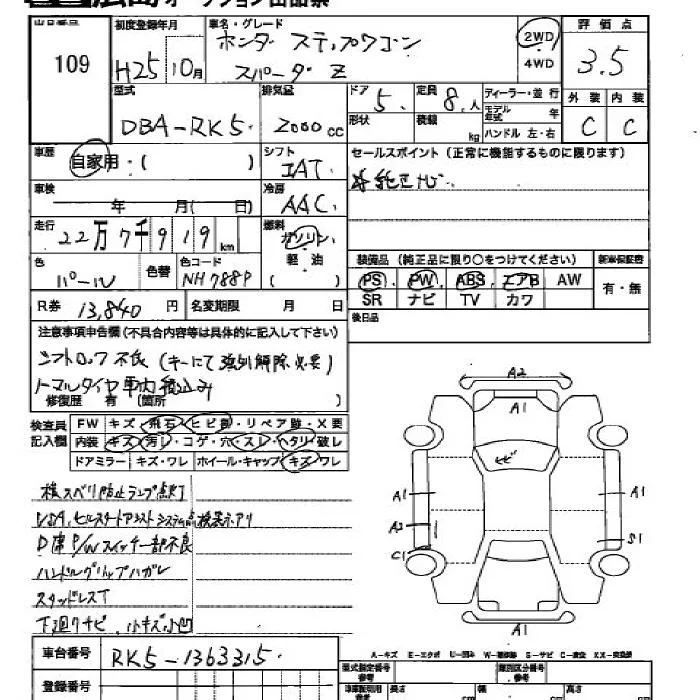 広島オークション出品票
出品番号 初度登録年月 車名・グレード 評価点
109 H25 10月 ホンダ ステップワゴン 2WD 3.5
スパーダ Z 4WD
型式 排気量 ドア 定員 ディーラー・並行 外装 内装
DBA-RK5 2000cc 5 8人 モデル年式 年 C C
形状 積載 kg ハンドル 左・右
車歴 シフト セールスポイント(正常に機能するものに限ります)
自家用・( ) IAT 純正ナビ
車検 冷房
年 月( 日) AAC
走行 燃料
22万7千919km ガソリン
軽・油 装備品(純正品に限り○をつけてください) 新車保証書
色 色替 色コード ( ) PS PW ABS エアB AW 有・無
パール NH788P SR ナビ TV カワ
R券 13,840円 名変期限 月 日 後日品
注意事項申告欄(不具合内容等は具体的に記入して下さい)
シフトロック不良(キーにて強制解除必要)
ノーマルタイヤ車内積込み
修復歴 有(箇所 )
検査員記入欄 FW キズ・飛石・ヒビ有・リペア跡・X要
内装 キズ・汚レ・コゲ・穴・スレ・ヘタリ・破レ
ドアミラー キズ・ワレ ホイール・キャップ キズ・ワレ
横スベリ防止ランプ点灯
VSA、ヒルスタートアシストシステム点検表示アリ
D席P/Wスイッチ一部不良
ハンドルグリップハガレ
スタッドレスT
下廻りサビ、小キズ小凹
A2
A1
ヒビ
A1 A1
A2
C1 S1
A1
車台番号 RK5-1363315
A-キズ E-エクボ U-凹み W-補修跡 S-サビ C-腐食 XX-交換済
登録番号 型式指定番号 参考 類別区分番号 参考
車庫証明用 参考 長さ cm 幅 cm 高さ cm